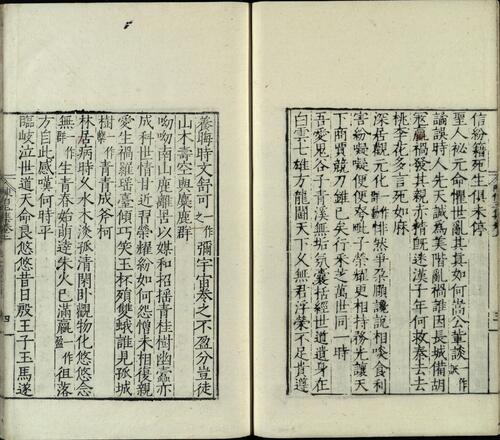 信紛籍死生俱未停
聖人祕元命懼世亂其真如何嵩公輩談一作
譎誤時人先天誠為美階亂禍誰因長城備胡
寇嬴禍發其親赤精既迷漢子年何救秦去去
桃李花多言死如麻
深居觀元化一作悱然爭朶頤讒說相啖食利
害紛㘈㘈便便夸毗子榮耀更相持務光讓天
下商賈競刀錐已矣行采芝萬世同一時
吾愛鬼谷子青溪無垢氛囊括經世道遺身在
白雲七雄方龍鬬天下久無君浮榮不足貴遵
四
養晦時文舒可一作之彌宇宙卷之不盈分豈徒
山木壽空與麋鹿群
呦呦南山鹿罹罟以媒和招搖青桂樹幽蠹亦
成科世情甘近習榮耀紛如何怨憎未相復親
愛生禍羅瑤臺傾巧笑玉杯殞雙蛾誰見孤城
樹一作青青成斧柯
林居病時久水木淡孤清閑臥觀物化悠悠念
無一作群生青春始萌達朱火已滿嬴一作盈徂落
方自此感嘆何時平
臨岐泣世道天命良悠悠昔日殷王子玉馬遂